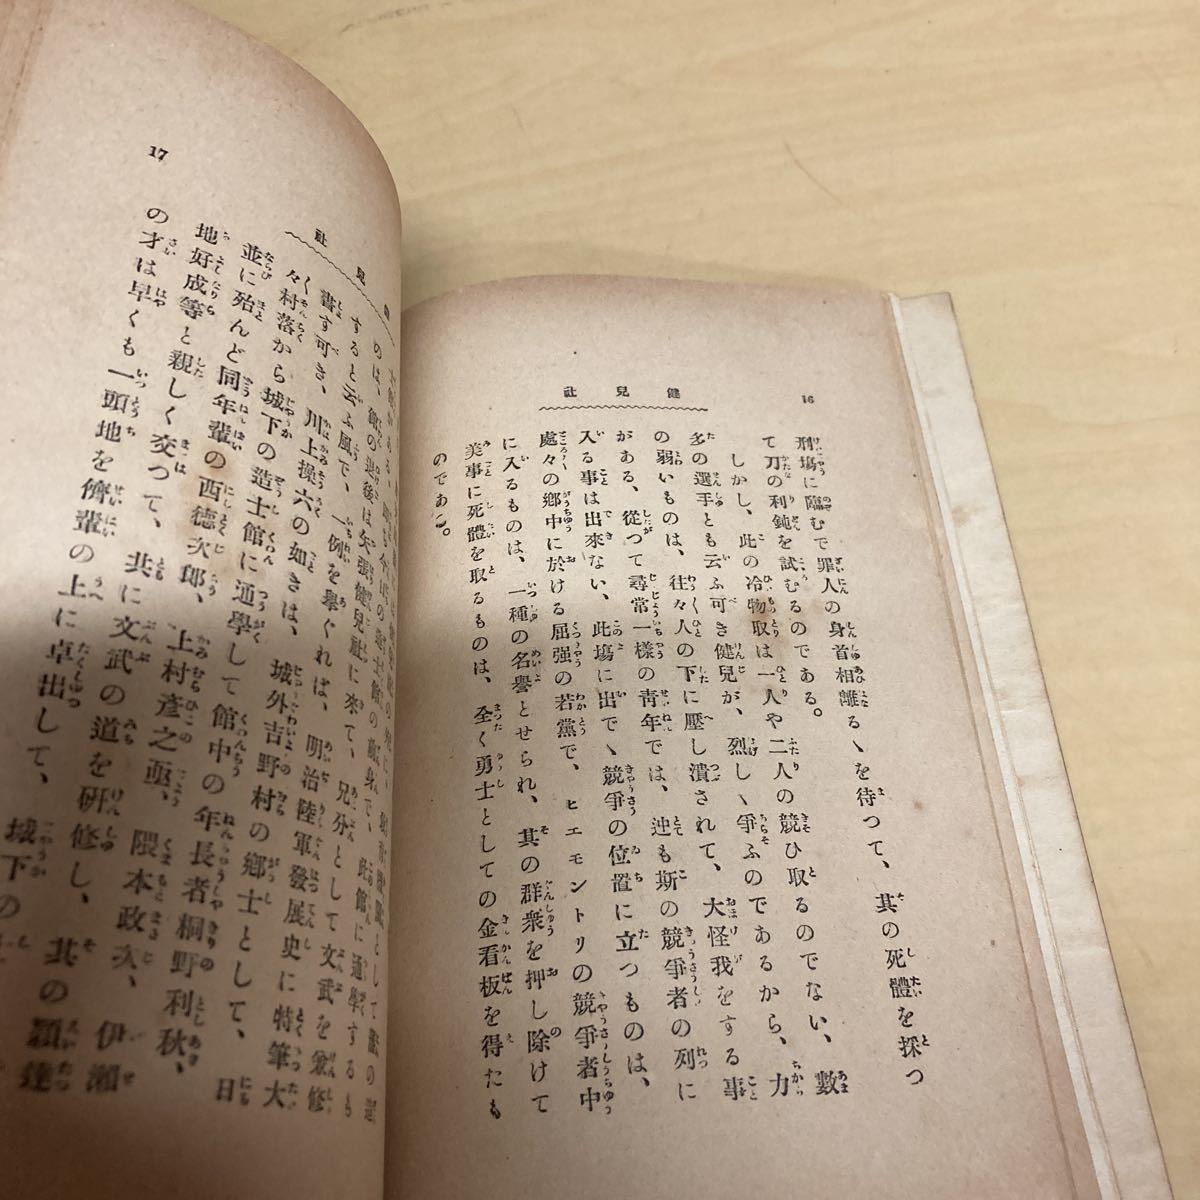 16
健兒社
刑場に臨むで罪人の身首相離るゝを待つて、其の死體を採つ
て刀の利鈍を試むるのである。
しかし、此の冷物取は一人や二人の競ひ取るのでない、數
多の選手とも云ふ可き健兒が、烈しく爭ふのであるから、力
の弱いものは、往々人の下に壓し潰されて、大怪我をする事
がある、從つて尋常一樣の靑年では、迚も斯の競爭者の列に
入る事は出來ない、此場に出で、競爭の位置に立つものは、
處々の鄕中に於ける屈强の若黨で、ヒエモントリの競爭者中
に入るものは、一種の名譽とせられ、其の群衆を押し除けて
美事に死體を取るものは、全く勇士としての金看板を得たも
のである。
17
兒社
のは、館の退後は矢張健兒社に來て、兄分として文武を兼修
すると云ふ風で、一例を擧ぐれば、明治陸軍發展史に特筆大
書す可き、川上操六の如きは、城外吉野村の鄕士として、日
々村落から城下の造士館に通學して館中の年長者桐野利秋、
並に殆んど同年輩の西德次郎、上村彥之亟、隈本政次、伊瀨
地好成等と親しく交つて、共に文武の道を硏修し、其の穎達
の才は早くも一頭地を儕輩の上に卓出して、城下の